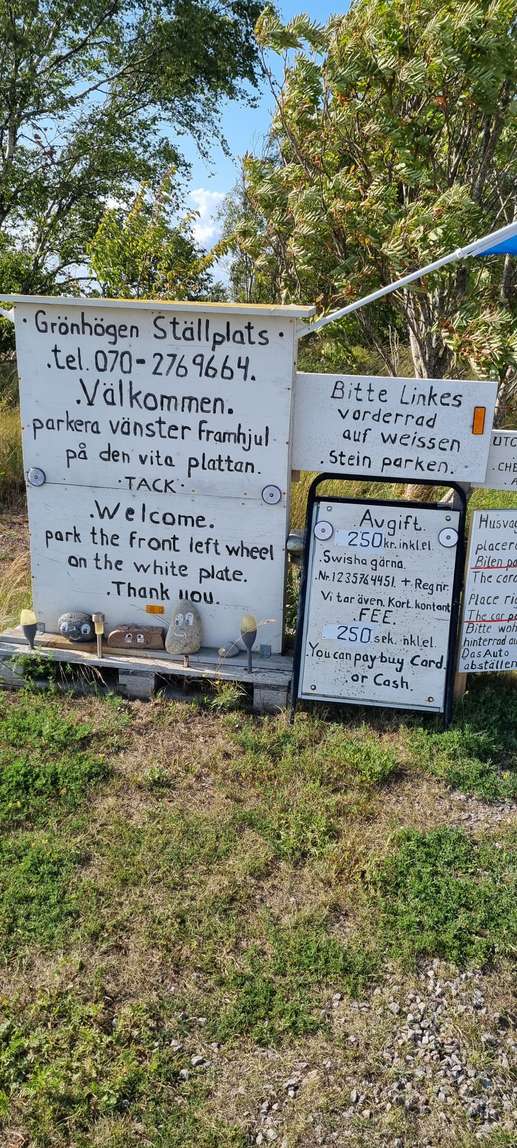 · Grönhögen Ställplats ·
. tel. 070-2769664.
. Välkommen.
parkera vänster framhjul
på den vita plattan.
· TACK ·
. Welcome.
park the front left wheel
on the white plate.
. Thank you.
Bitte Linkes
vorderrad
auf weissen
stein parken.
. Avgift.
250 kr. inkl. el.
. Swisha gärna.
. Nr. 1235764451 + Regnr.
Vi tar även. Kort. kontant
. FEE.
250 sek. inkl el.
. You can pay buy Card.
or Cash.
UTC
CHE
Husva
placera
Bilen pa
The cara
Place ri
The car pa
Bitte woh
hinterrad au
Das Auto
abstellen